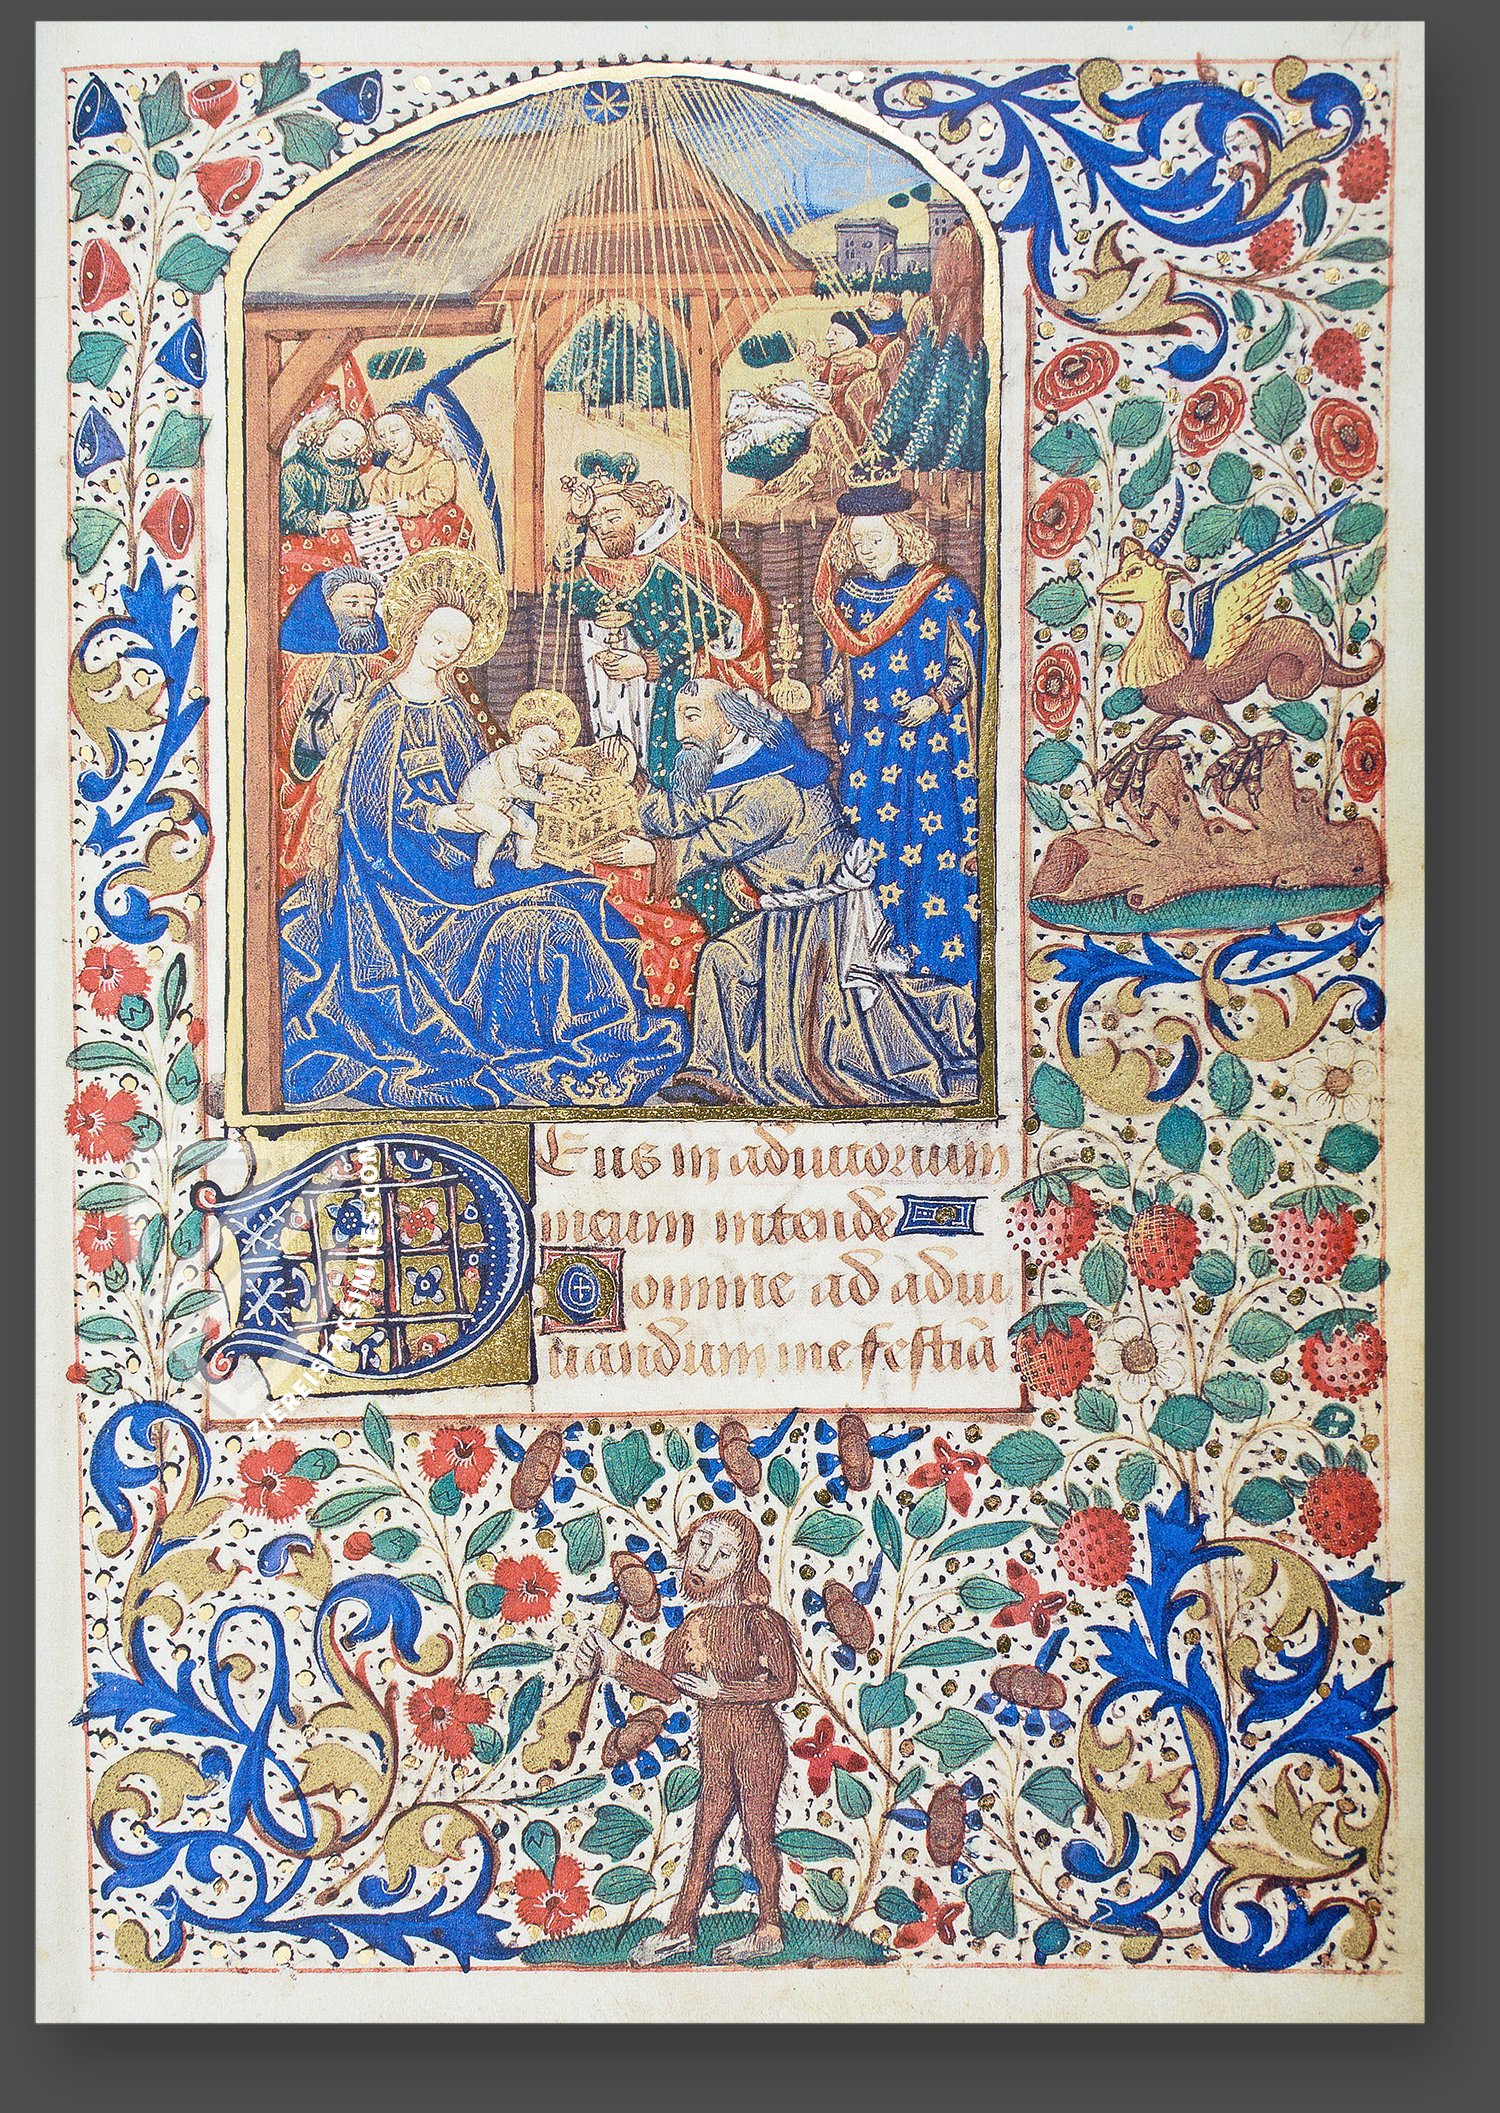 Deus in adiutorium
meum intende
Domine ad adiu
uandum me festiā
ZIEREIS FACSIMILES.COM